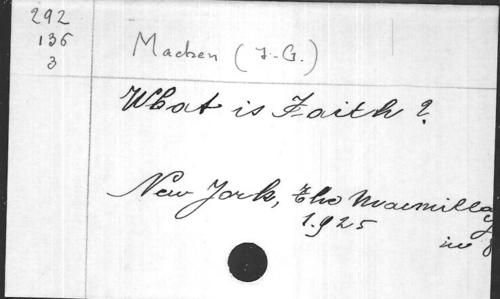 292
136
3
Machen (J.-G.)
What is Faith ?
New York, The Macmillan
1925
in 8